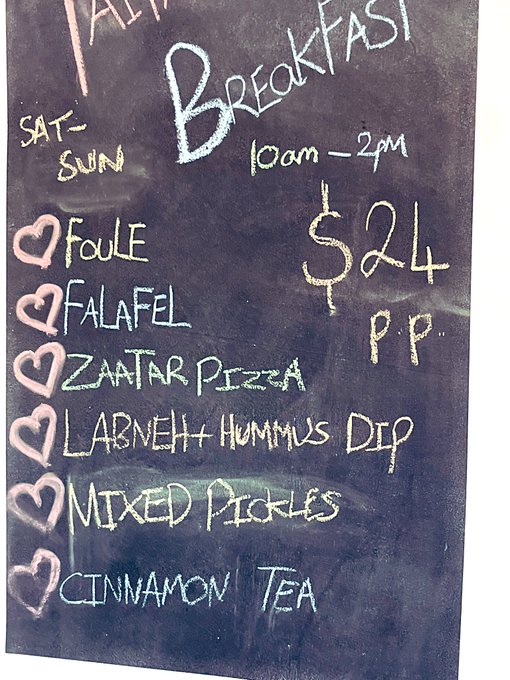 BREAKFAST
SAT-
SUN
10am - 2pm
$24
P.P.
FOULE
FALAFEL
ZAATAR PIZZA
LABNEH + HUMMUS DIP
MIXED PICKLES
CINNAMON TEA